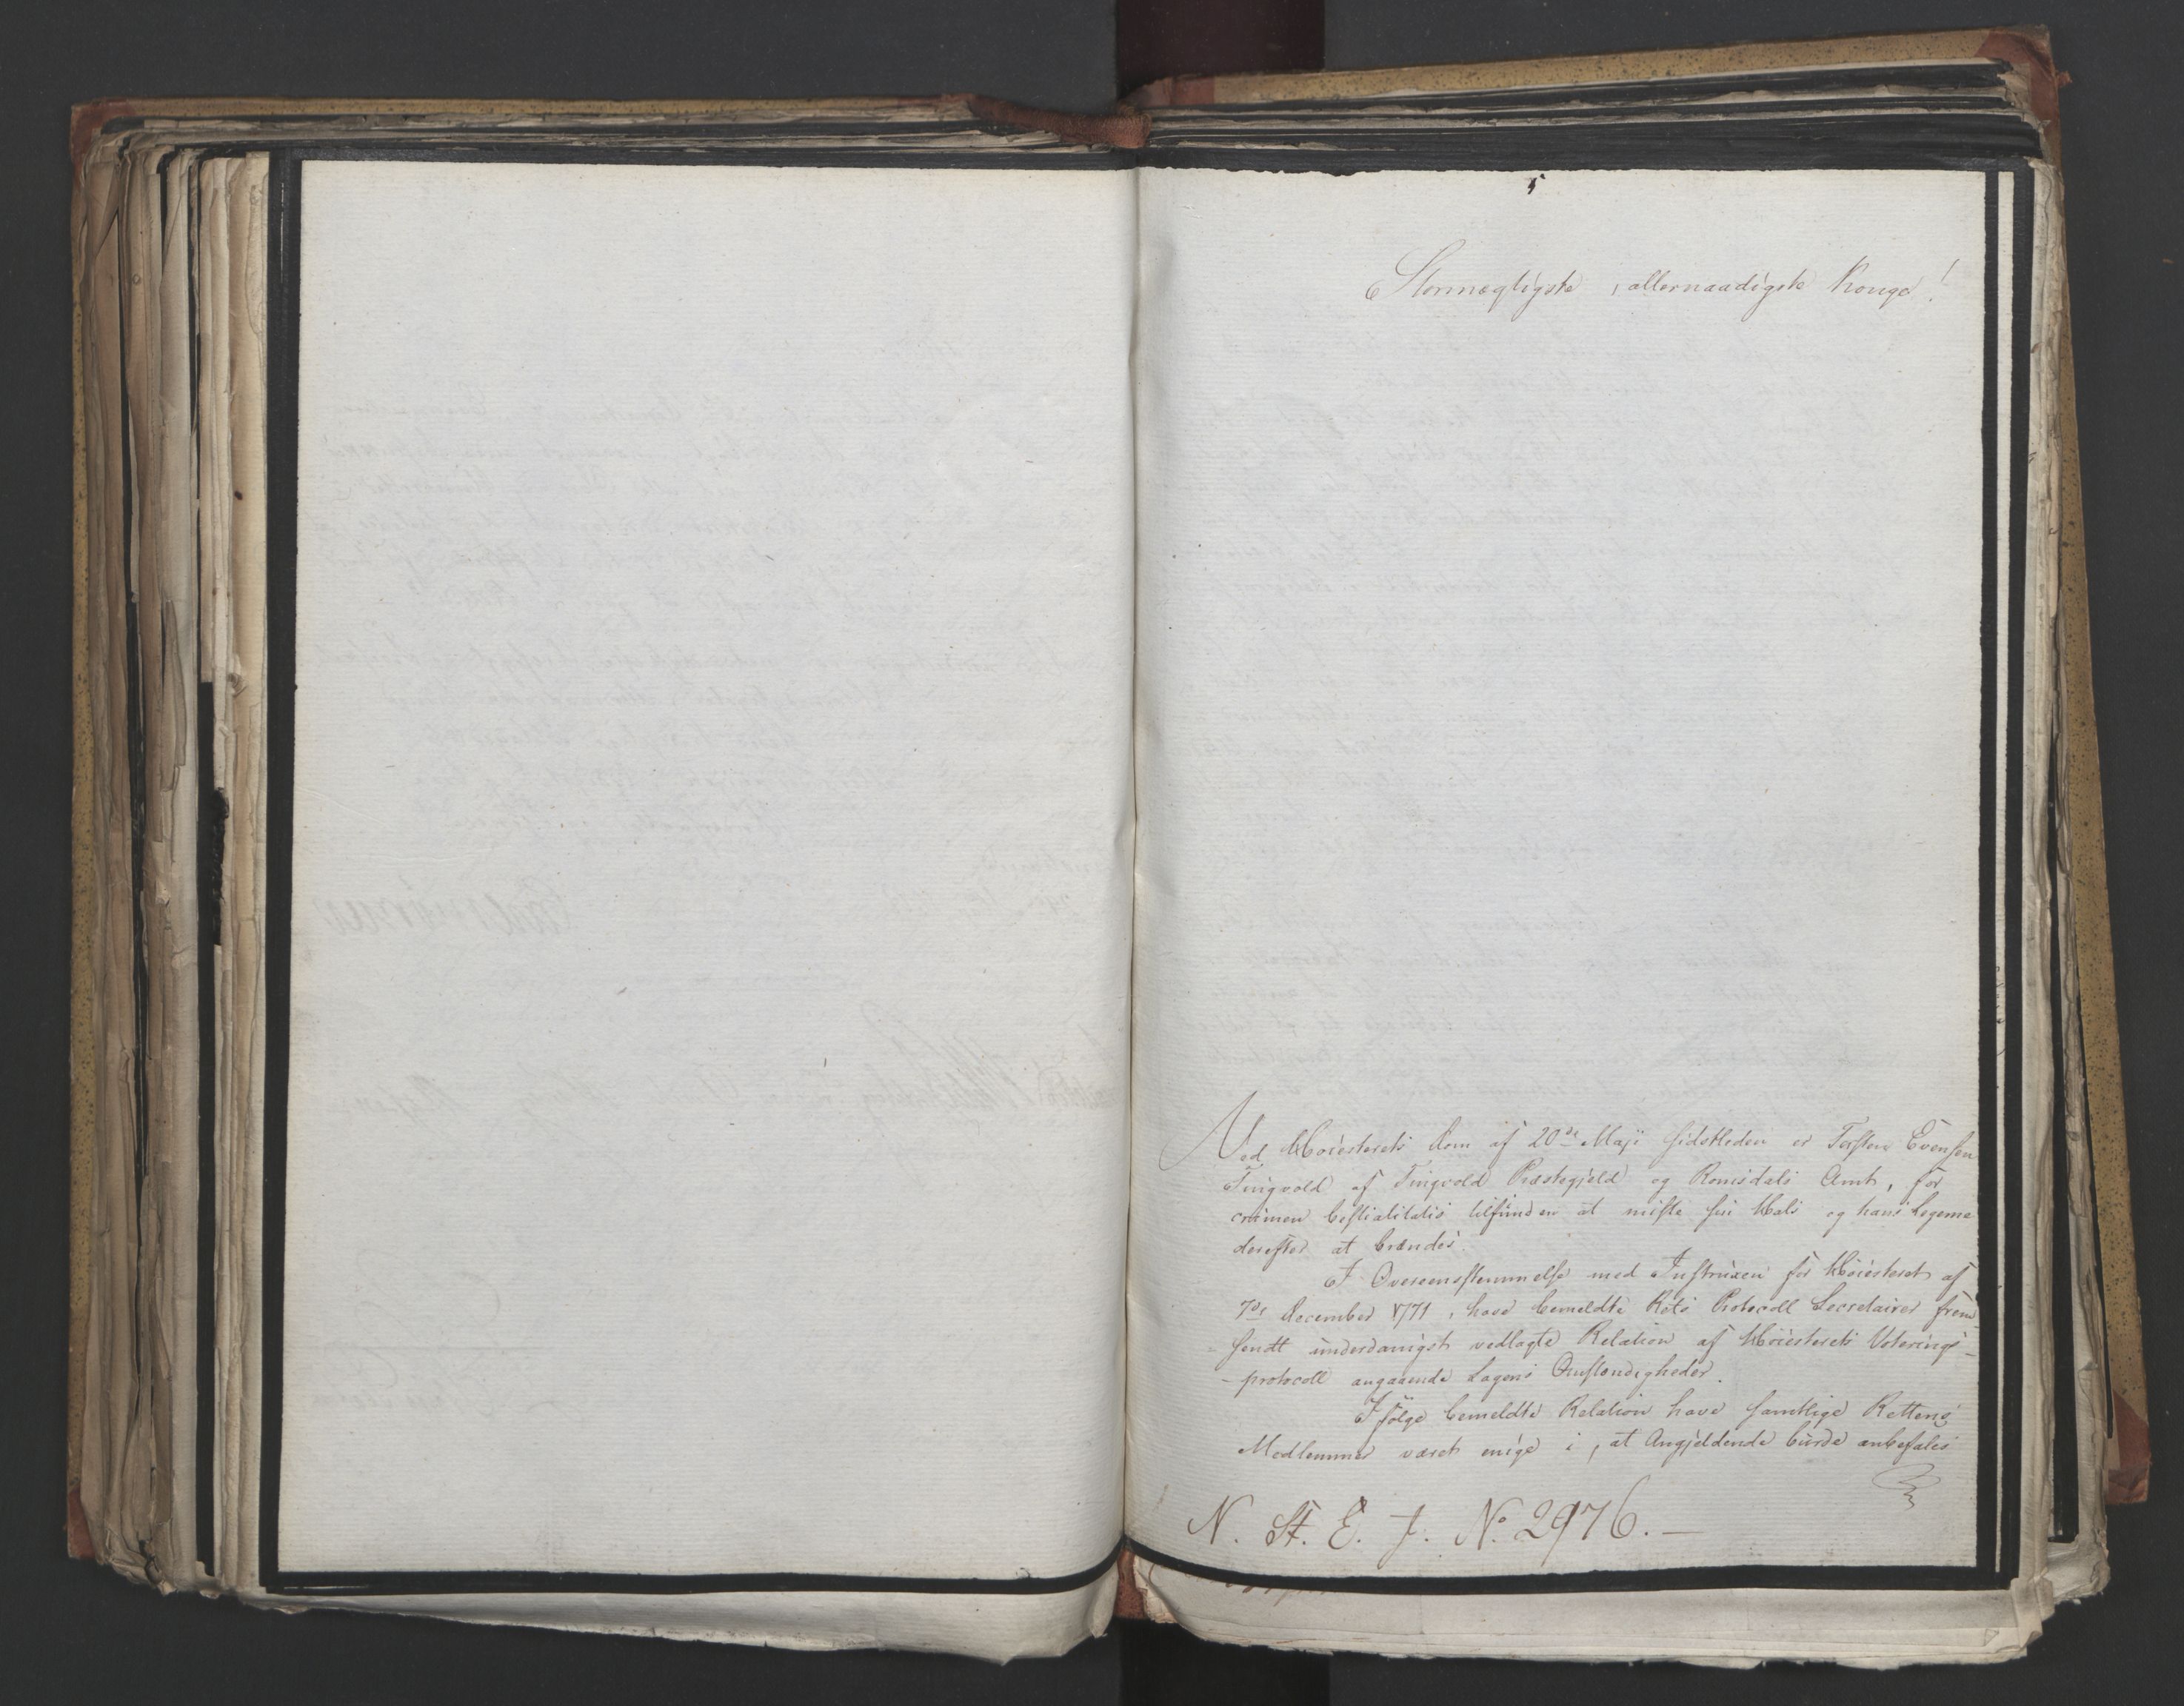 Stormægtigste, allernaadigste Konge!
Ved Höiesterets Dom af 20de Maji sidstleden er Torsten Evensen
Tingvold af Tingvold Præstegjeld og Romsdals Amt, for
crimen bestialitatis tilfunden at miste sin Hals og hans Legeme
derefter at brændes.
I Overeensstemmelse med Instruxen for Höiesteret af
7de December 1771, have bemeldte Rets Protocoll Secretairer frem-
sendt underdanigst vedlagte Relation af Höiesterets Voterings-
-protocoll angaaende Sagens Omstændigheder.
Ifölge bemeldte Relation have samtlige Rettens
Medlemmer været enige i, at Angjeldende burde anbefales
N. St. E. J. No 2976.—